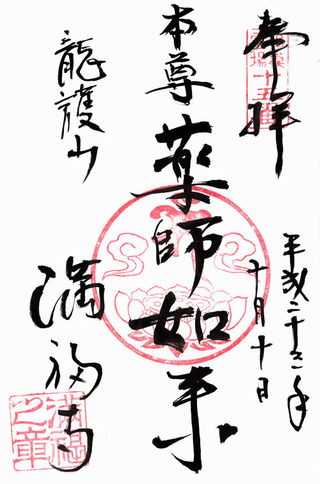 奉拝
十五番
平成二十三年
十月十日
本尊
薬師如来
龍護山
満福寺
満福之章